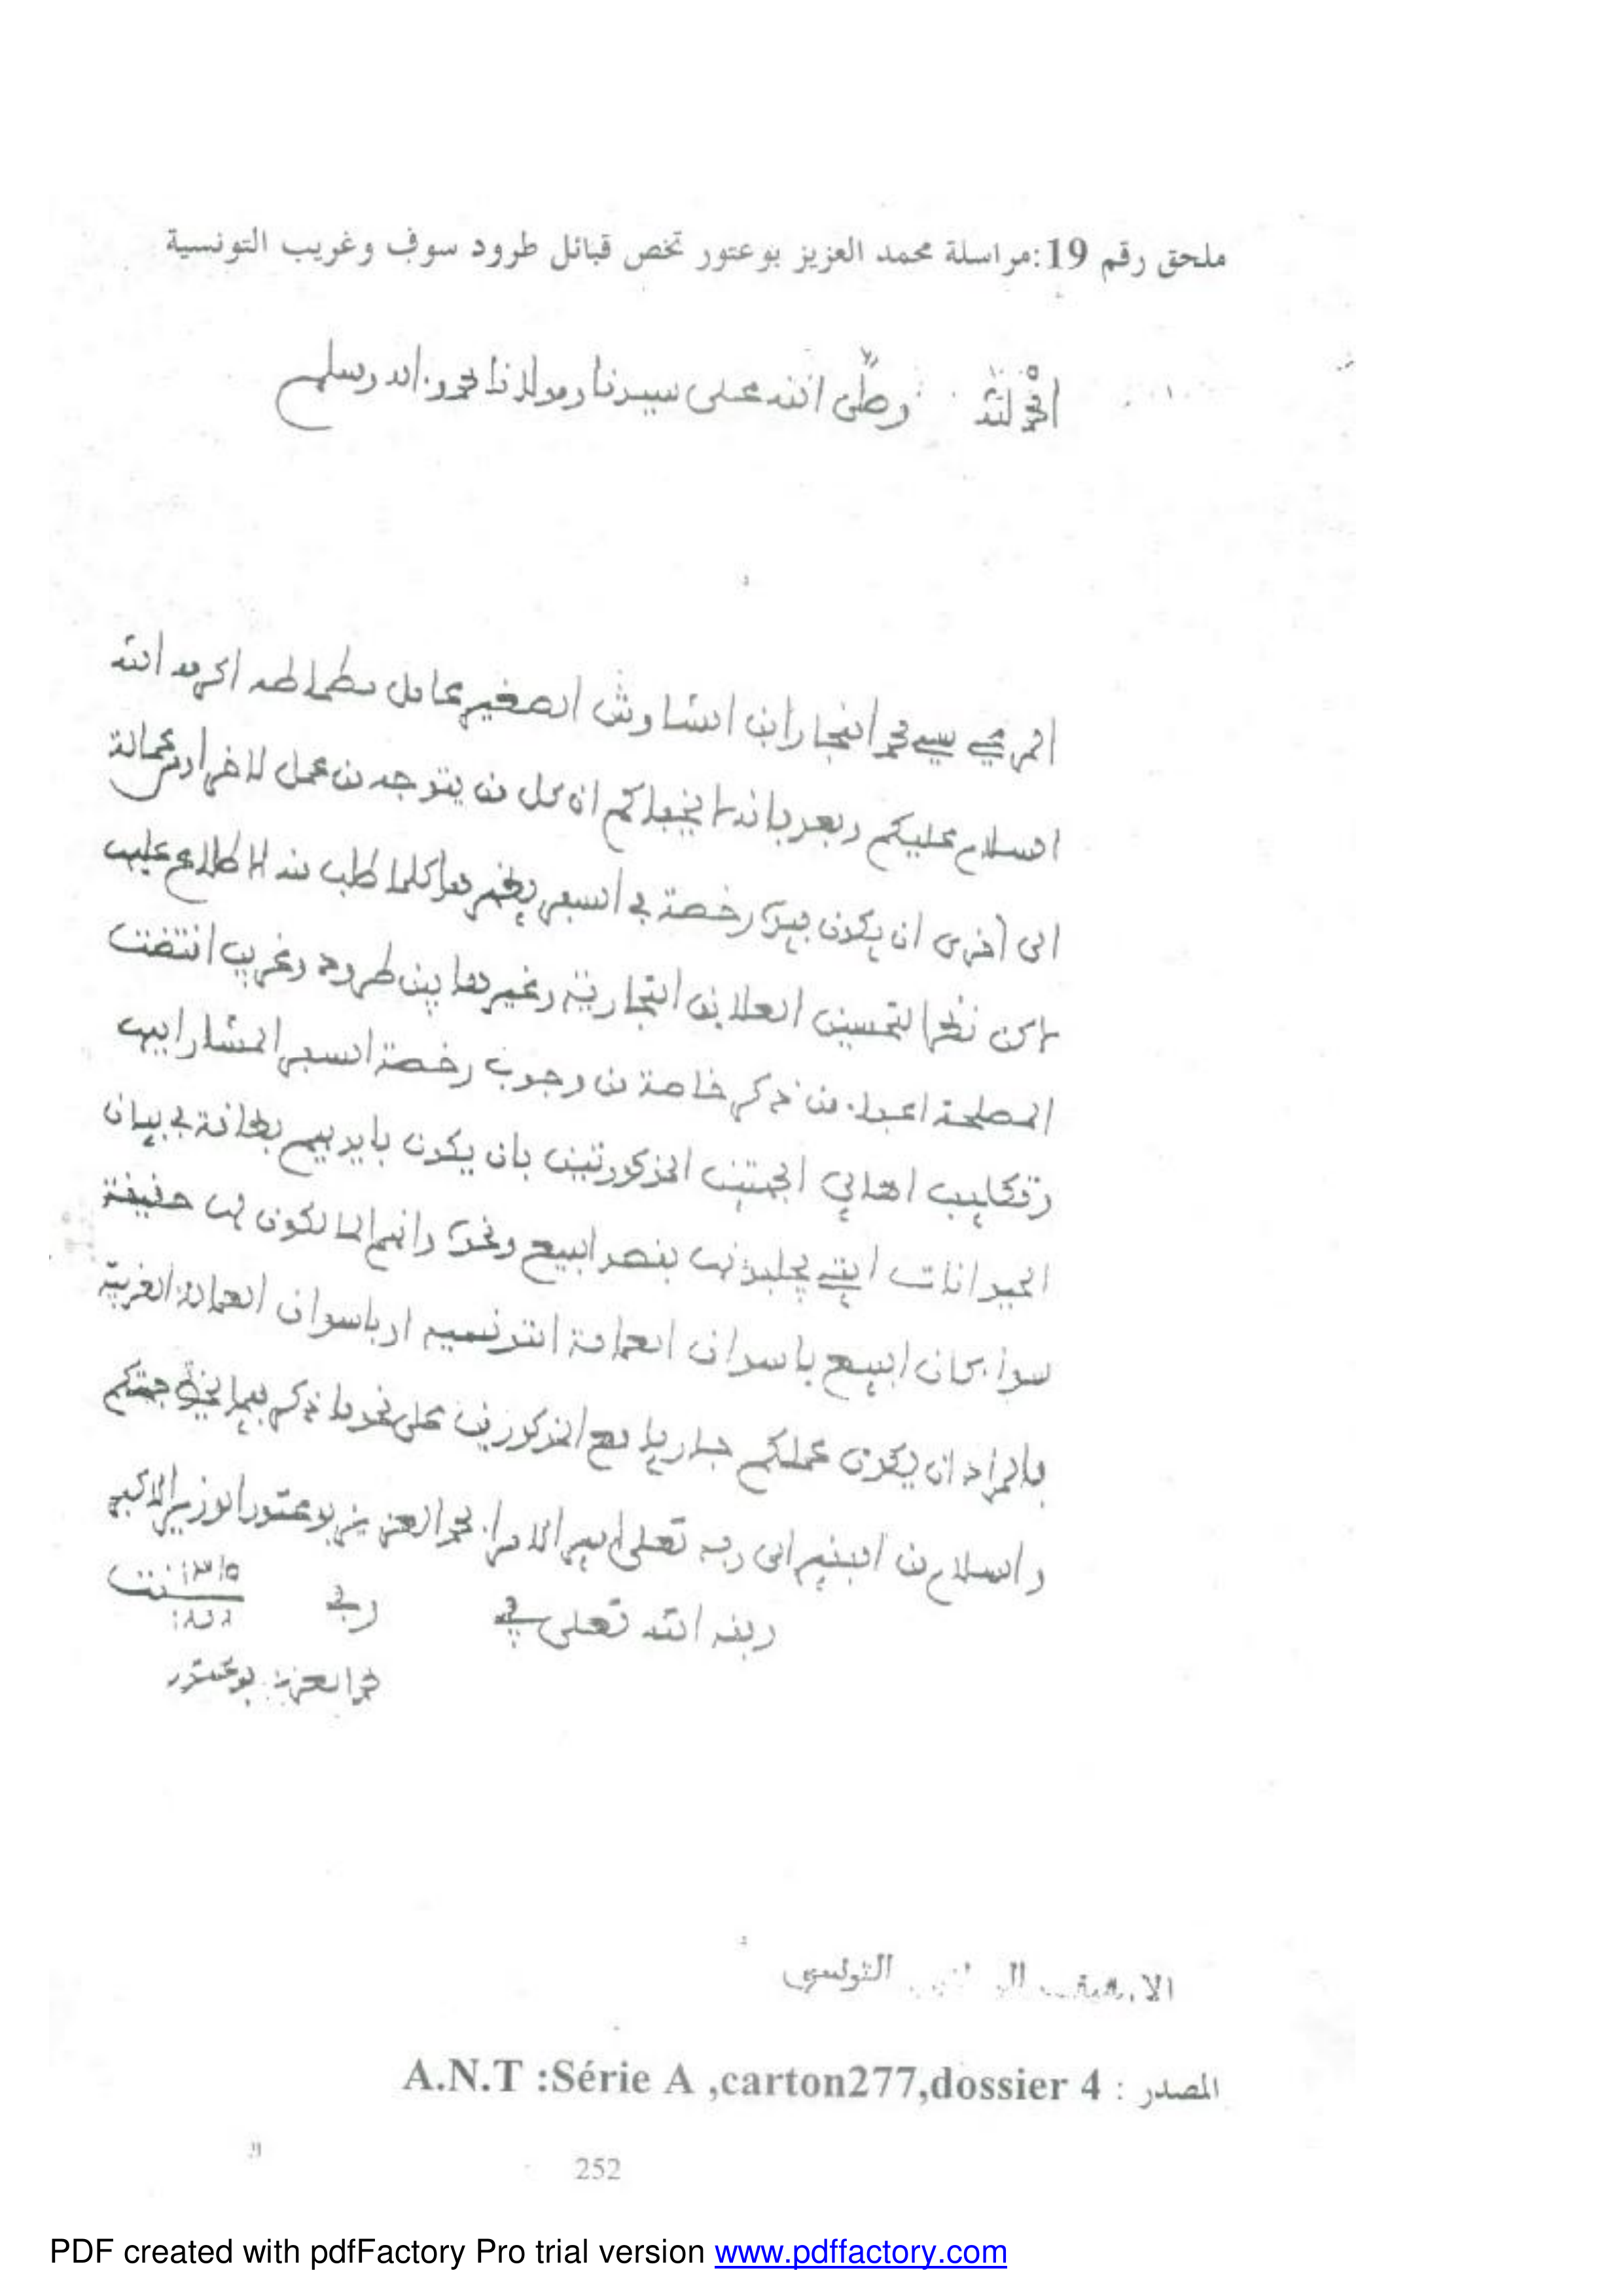 ملحق رقم 19:مراسلة محمد العزيز بوعتور تخص قبائل طرود سوف وغريب التونسية
الحمد لله وصلى الله على سيدنا ومولانا محمد واله وسلم
سي محمد ابن الشاوش الصغير عامل مطماطه اكرمه الله
السلام عليكم وبعد فانه لا يخفاكم ان كل من يتوجه من عمل لاخر او من عمالة
الى أخرى ان يكون بيده رخصة في السفر كلما طلب منه الاطلاع عليها
لاكن نظرا لتحسين العلايق التجارية وغيرها بين طرود وغريب اقتضت
المصلحة اعفاء من ذكر خاصة من وجوب رخصة السفر المشار اليها
وتكليف اهالي الجهتين المذكورتين بان يكون بايديهم بطاقة في بيان
الحيوانات التي يجلبونها بقصد البيع ونحوه
سواء كان البيع باسواق العمالة التونسية او باسواق العمالة الغربية
فالمراد ان يكون عملكم جاريا مع المذكورين على نحو ما ذكر فيما يخص جهتكم
والسلام من الفقير الى ربه تعلى امير الامراء محمد العزيز بوعتور الوزير الاكبر
وفقه الله تعلى في
محمد العزيز بوعتور
التونسي
المصدر : A.N.T :Série A ,carton277,dossier 4
252
PDF created with pdfFactory Pro trial version www.pdffactory.com